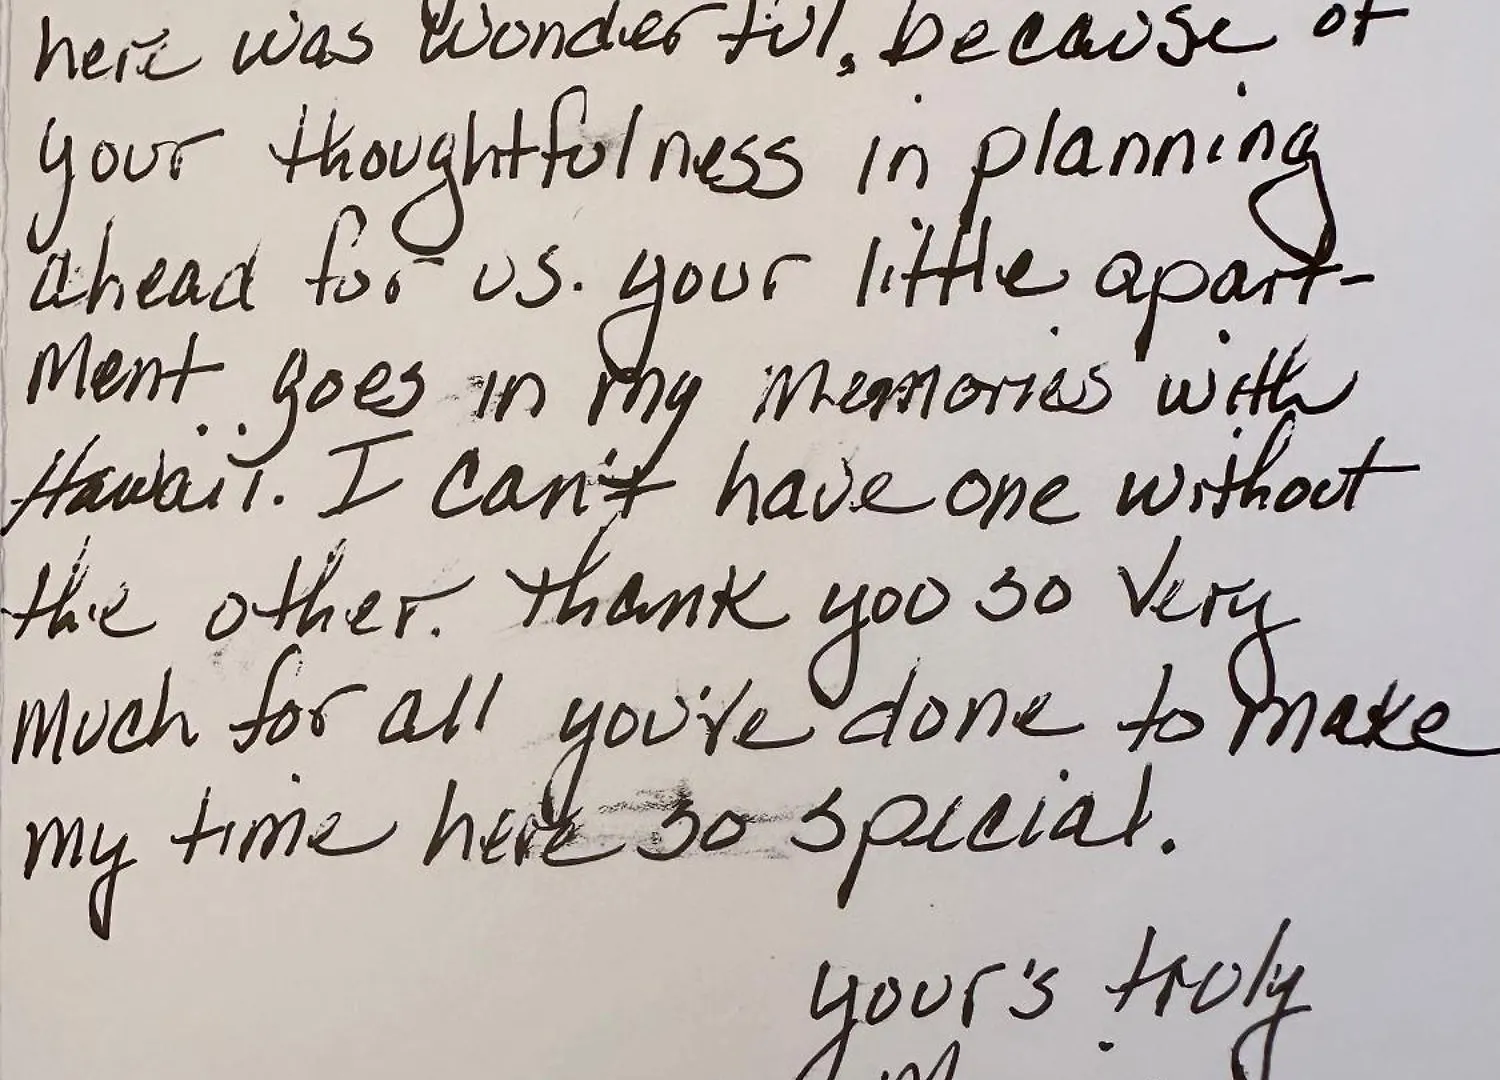 here was wonderful, because of
your thoughtfulness in planning
ahead for us. your little apart-
ment goes in my memories with
Hawaii. I can't have one without
the other. Thank you so very
much for all you've done to make
my time here so special.
your's truly